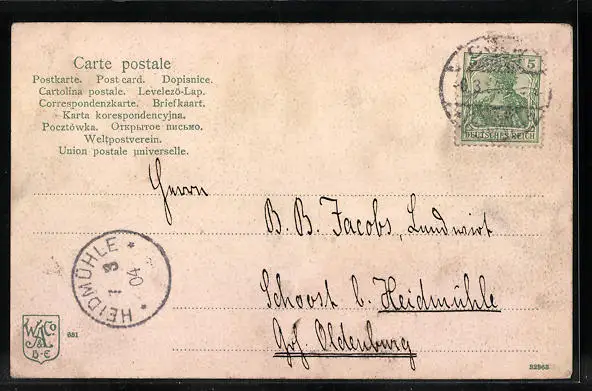 Carte postale
Postkarte. Post card. Dopisnice.
Cartolina postale. Levelező-Lap.
Correspondenzkarte. Briefkaart.
Karta korespondencyjna.
Pocztówka. Открытое письмо.
Weltpostverein.
Union postale universelle.
5 5
DEUTSCHES REICH
Herrn
B. B. Jacobs, Landwirt
Schoost b. Heidmühle
Grh. Oldenburg
HEIDMÜHLE
1 3
04
W & A Co.
B-E
681
32963